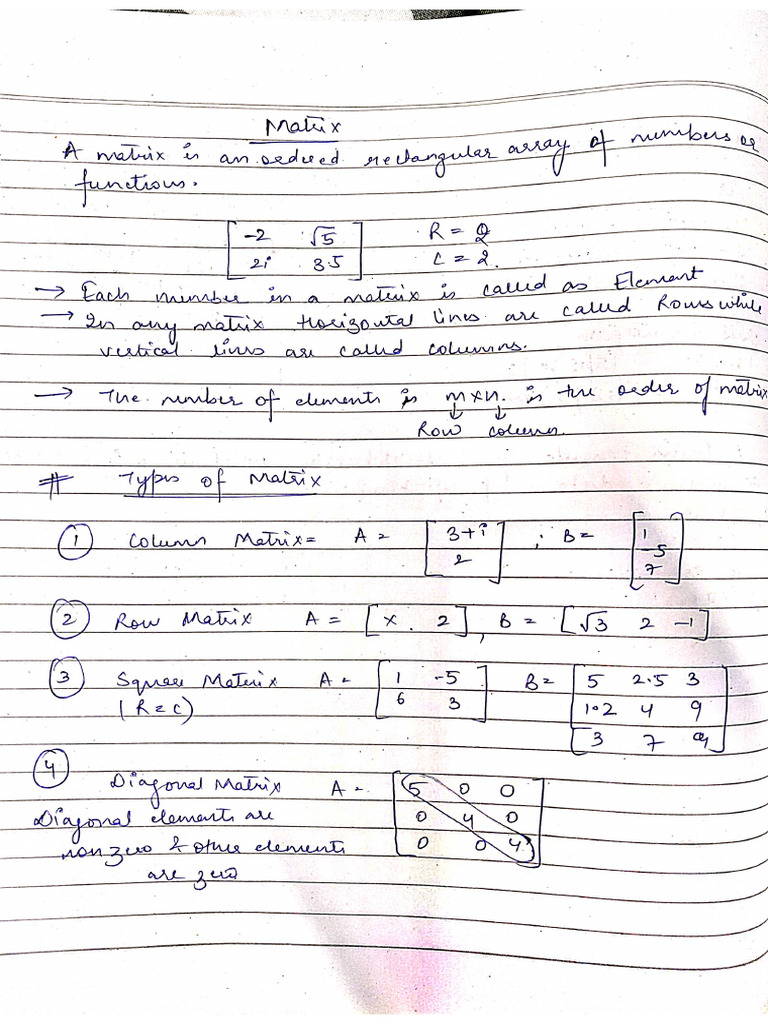 Matrix
A matrix is an ordered rectangular array of numbers or
functions.
[-2 √5
2i 3.5]
R = 2
C = 2.
→ Each number in a matrix is called as Element
→ In any matrix Horizontal lines are called Rows while
vertical lines are called columns.
→ The number of elements is m×n. is the order of matrix
↓ ↓
Row column.
# Types of Matrix
① Column Matrix = A = [3+i
2] ; B = [1
-5
7]
② Row Matrix A = [x . 2], B = [√3 2 -1]
③ Square Matrix A = [1 -5
6 3] B = [5 2.5 3
1.2 4 9
3 7 ]
(R=C)
④ Diagonal Matrix A = [5 0 0
0 4 0
0 0 4]
Diagonal elements are
non zero & other elements
are zero